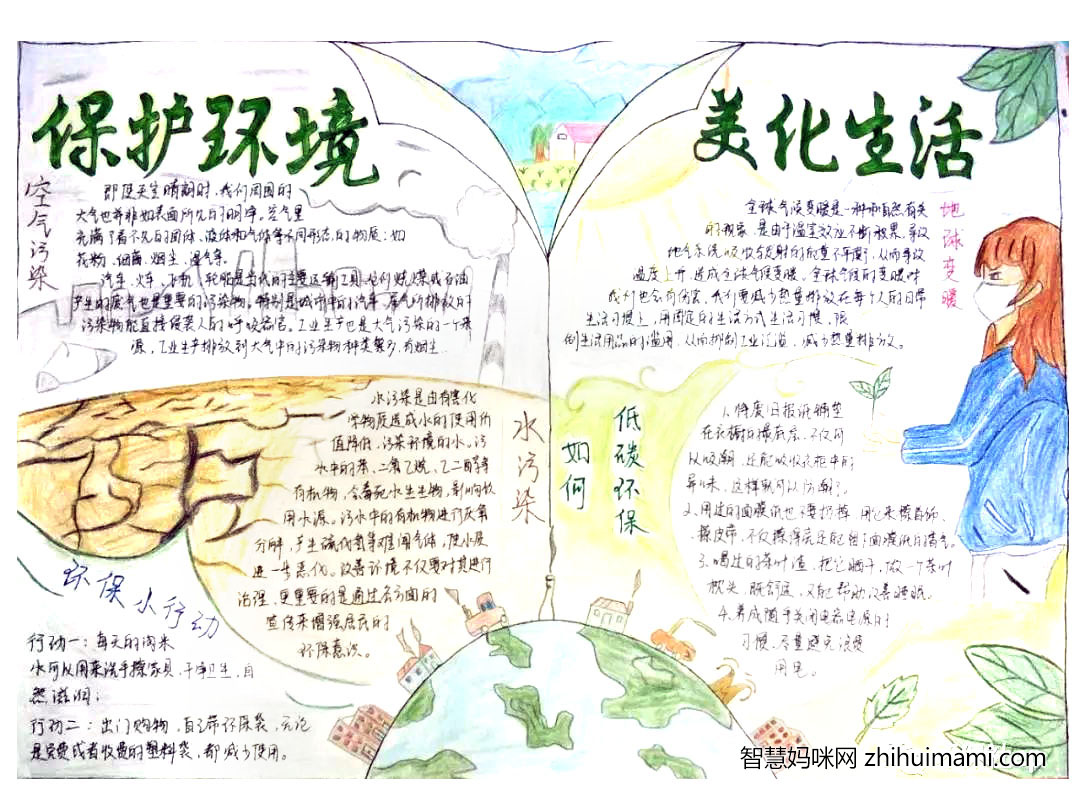 保护环境
美化生活
空气污染
即使天空晴朗时，我们周围的
大气也并非如表面所见的明净。空气里
充满了看不见的固体、液体和气体等不同形态的物质：如
花粉、细菌、烟尘、湿气等。
汽车、火车、飞机、轮船是当代的主要运输工具，它们烧煤或石油
产生的废气也是重要的污染物。特别是城市中的汽车，废气所排放的
污染物能直接侵袭人的呼吸器官。工业生产也是大气污染的一个来
源，工业生产排放到大气中的污染物种类繁多，有烟尘…
水污染
水污染是由有害化
学物质造成水的使用价
值降低，污染环境的水。污
水中的苯、二氯乙烷、乙二醇等
有机物，会毒死水生生物，影响饮
用水源。污水中的有机物进行厌氧
分解，产生硫化氢等难闻气体，使水质
进一步恶化。改善环境不仅要对其进行
治理，更重要的是通过各方面的
宣传来增强居民的
环保意识。
环保小行动
行动一：每天的淘米
水可以用来洗手擦家具，干净卫生，自
然滋润；
行动二：出门购物，自己带环保袋，无论
是免费或者收费的塑料袋，都减少使用。
地球变暖
全球气候变暖是一种和自然有关
的现象，是由于温室效应不断效果，导致
地气系统吸收与发射的能量不平衡，从而导致
温度上升，造成全球气候变暖。全球气候的变暖
我们也会有伤害，我们要减少热量排放在每个人的日常
生活习惯上，用固定的生活方式生活习惯，限
制生活用品的滥用，从而抑制工业泛滥，减少热量排放。
如何
低碳环保
1、将废旧报纸铺垫
在衣橱的最底层，不仅可
以吸潮，还能吸收衣柜中的
异味，这样就可以
2、用过的面膜纸也不要扔掉，用它来擦首饰、
擦皮带，不仅擦得亮还能留下面膜纸的清气。
3、喝过的茶叶渣，把它晒干，做一个茶叶
枕头，既舒适，又能帮助改善睡眠。
4、养成随手关闭电器电源的
习惯，尽量避免浪费
用电。
智慧妈咪网 zhihuimami.com